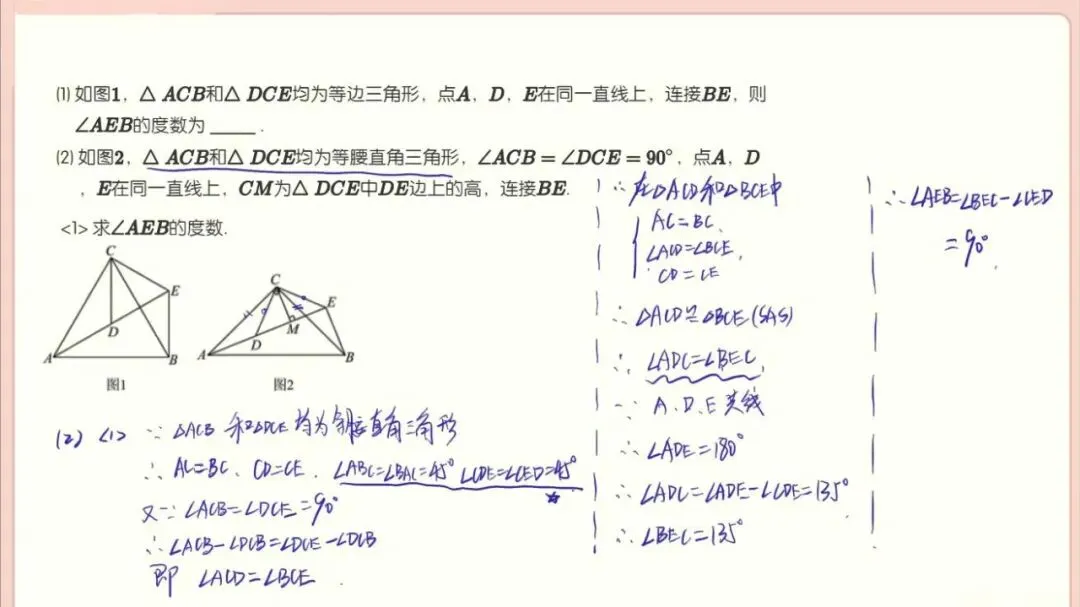 (1) 如图1，△ ACB和△ DCE均为等边三角形，点A，D，E在同一直线上，连接BE，则
∠AEB的度数为 ____ .
(2) 如图2，△ ACB和△ DCE均为等腰直角三角形，∠ACB = ∠DCE = 90°，点A，D
，E在同一直线上，CM为△ DCE中DE边上的高，连接BE.
<1> 求∠AEB的度数.
C
E
D
A
B
图1
C
E
M
D
A
B
图2
(2) <1> ∵ △ACB 和△DCE 均为等腰直角三角形
∴ AC=BC、CD=CE、∠ABC=∠BAC=45° ∠CDE=∠CED=45°
又∵ ∠ACB=∠DCE=90°
∴ ∠ACB-∠DCB=∠DCE-∠DCB
即 ∠ACD=∠BCE .
∴ 在△ACD和△BCE中
AC=BC、
∠ACD=∠BCE、
CD=CE
∴ △ACD≌△BCE(SAS)
∴ ∠ADC=∠BEC
∵ A、D、E 共线
∴ ∠ADE=180°
∴ ∠ADC=∠ADE-∠CDE=135°
∴ ∠BEC=135°
∴ ∠AEB=∠BEC-∠CED
=90°.